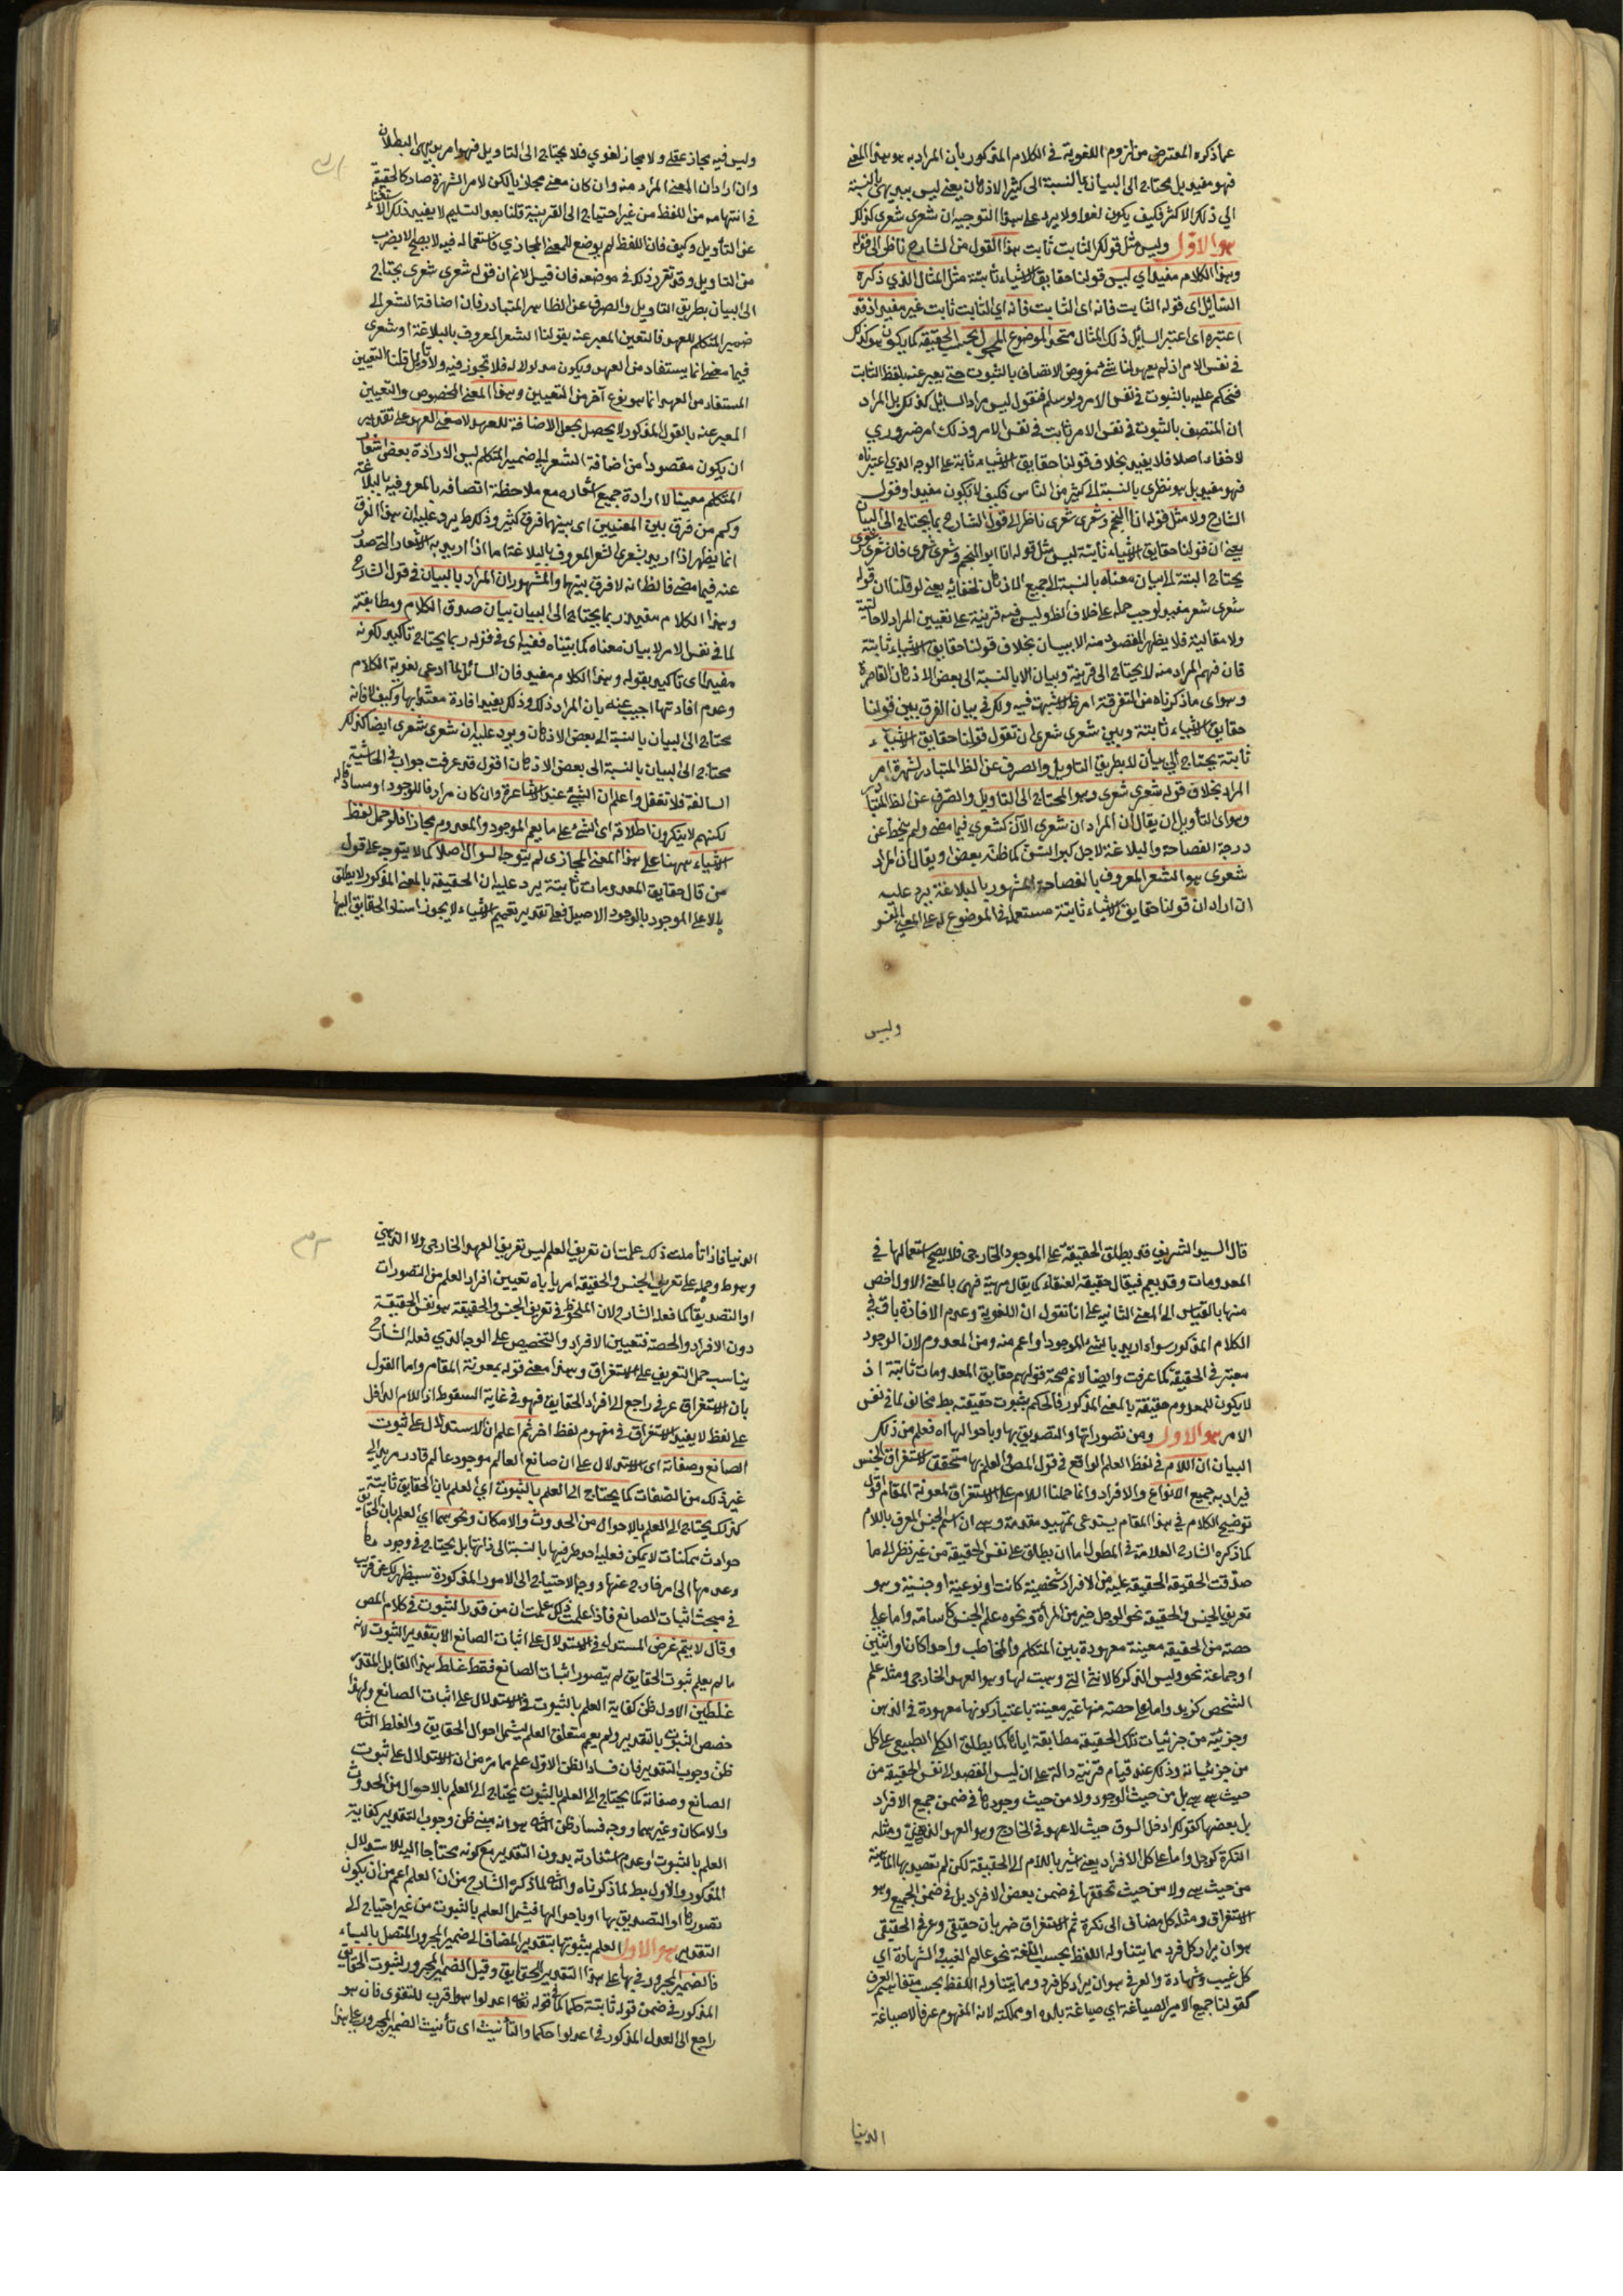 عما ذكره المعترض من لزوم اللغوية في الكلام المذكور بأن المراد به هو هذا المعنى
فهو مفيد بل محتاج الى البيان بالنسبة الى كثير الاذهان يعني ليس ببديهي بالنسبة
الى ذلك الاكثر فكيف يكون لغوا ولا يرد على هذا التوجيه ان شعري شعري كذلك
هو الاول وليس مثل قولك الثابت ثابت هذا القول من الشارح ناظر الى قوله
وهذا الكلام مفيد اي ليس قولنا حقايق الاشياء ثابتة مثل المثال الذي ذكره
السائل اى قوله الثابت ثابت فانه اى الثابت ثابت غير مفيد اذ قد
اعتبره اى اعتبر السائل ذلك المثال متحد الموضوع المحمول بحسب الحقيقة كما يكون كذلك
في نفس الامر اذ لم يعهد لنا شئ مفروض الاتصاف بالثبوت حتى يعبر عنه بلفظ الثابت
فنحكم عليه بالثبوت في نفس الامر ولو سلم فنقول ليس مراد السائل كذلك بل المراد
ان المتصف بالثبوت في نفس الامر ثابت في نفس الامر وذلك امر ضروري
لا خفاء اصلا فلا يفيد بخلاف قولنا حقايق الاشياء ثابتة على الوجه الذي اعتبرناه
فهو مفيد بل هو نظرى بالنسبة الى كثير من الناس فكيف لا يكون مفيدا وقول
الشارح ولا مثل قوله انا ابو النجم وشعري شعري ناظر الى قول الشارح بما يحتاج الى البيان
يعني ان قولنا حقايق الاشياء ثابتة ليس مثل قوله انا ابو النجم وشعري شعري فان شعري شعري
يحتاج البتة الى بيان معناه بالنسبة الى جميع الاذهان لخفائه يعني لو قلنا ان قوله
شعري شعر مفيد لوجب حمله على خلاف الظ وليس فيه قرينة على تعيين المراد لا حالية
ولا مقالية فلا يظهر المقصود منه الا ببيان بخلاف قولنا حقايق الاشياء ثابتة
فان فهم المراد منه لا يحتاج الى قرينة وبيان الا بالنسبة الى بعض الاذهان القاصرة
وهو اى ما ذكرناه من التفرقة امر ظ لا شبهة فيه ولك في بيان الفرق بين قولنا
حقايق الاشياء ثابتة وبين شعري شعري ان تقول قولنا حقايق الاشياء
ثابتة يحتاج الى بيان لا بطريق التاويل والصرف عن الظ المتبادر لشهرة امر
المراد بخلاف قوله شعري شعري وهو المحتاج الى التاويل والصرف عن الظ المتبادر
وهو اى التأويل ان يقال ان المراد ان شعري الآن كشعري فيما مضى ولم ينحط عن
درجة الفصاحة والبلاغة لاجل كبر السن كما ظنه بعض او يقال ان المراد
شعري هو الشعر المعروف بالفصاحة المشهور بالبلاغة يرد عليه
ان اراد ان قولنا حقايق الاشياء ثابتة مستعمل في الموضوع له على المعنى اللغو
وليس
وليس فيه مجاز عقلي ولا مجاز لغوي فلا يحتاج الى التاويل فهو امر بديهي البطلان
وان اراد ان المعنى المراد منه وان كان معنى مجازيا لكن لامر الشهرة صار كالحقيقة
في انتهامه من اللفظ من غير احتياج الى القرينة قلنا بعد التسليم لا يفيد ذلك الاستغناء
عن التأويل وكيف فان اللفظ لم يوضع للمعنى المجازي فاستعماله فيه لا يصح الا بضرب
من التاويل وقد تقرر ذلك في موضعه فان قيل لانم ان قوله شعري شعري يحتاج
الى البيان بطريق التاويل والصرف عن الظاهر المتبادر فان اضافة الشعر الى
ضمير المتكلم للعهد فالتعين المعبر عنه بقولنا الشعر المعروف بالبلاغة او شعري
فيما مضى انما يستفاد من العهد ويكون مدلولا له فلا تجوز فيه ولا تأويل قلنا التعيين
المستفاد من العهد انما هو نوع آخر من التعيين وهذا المعنى المخصوص والتعيين
المعبر عنه بالقول المذكور لا يحصل بجعل الاضافة للعهد لا معنى العهد على تقدير
ان يكون مقصودا من اضافة الشعر الى ضمير المتكلم ليس الا رادة بعض اشعار
المتكلم معينا لا ارادة جميع اشعاره مع ملاحظة اتصافه بالمعروفية بالبلاغة
وكم من فرق بين المعنيين اى بينهما فرق كثير وذلك ظ يرد عليه ان هذا الفرق
انما يظهر اذا اريد بشعري الشعر المعروف بالبلاغة اما اذا اريد به الاشعار التي صدر
عنه فيما مضى فالظ انه لا فرق بينهما والمشهور ان المراد بالبيان في قول الشارح
وهذا الكلام مفيد ربما يحتاج الى البيان بيان صدق الكلام ومطابقته
لما في نفس الامر لا بيان معناه كما بيناه فعنه اى في قوله ربما يحتاج تاكيد لكونه
مفيدا اى تاكيد بقوله وهذا الكلام مفيد فان السائل لما ادعى لغوية الكلام
وعدم افادتها اجيب عنه بان المراد ذلك وذلك يفيد افادة معتدا بها وكيف لا فانه
محتاج الى البيان بالنسبة الى بعض الاذهان ويرد عليه ان شعري شعري ايضا كذلك
محتاج الى البيان بالنسبة الى بعض الاذهان اقول قد عرفت جوابه في الحاشية
السالفة فلا تغفل واعلم ان الشئ عند الاشاعرة وان كان مرادفا للوجود او مساوقا له
لكنهم لا ينكرون اطلاقه اى الشئ على ما يعم الموجود والمعدوم مجازا فلو حمل لفظ
الاشياء ههنا على هذا المعنى المجازى لم يتوجه السوال اصلا كما لا يتوجه على قول
من قال حقايق المعدومات ثابتة يرد عليه ان الحقيقة بالمعنى المذكور لا يطلق
الا على الموجود بالوجود الاصيل فعلى تقدير تعميم الاشياء لا يجوز اسناد الحقايق اليها
قال السيد الشريف قد يطلق الحقيقة على الموجود الخارجي فلا يصح استعمالها في
المعدومات وقد يعم فيقال حقيقة العنقاء كما يقال مهية فهي بالمعنى الاول اخص
منها بالقياس الى المعنى الثاني على انا نقول ان اللغوية وعدم الافادة باق في
الكلام المذكور سواء اريد بالشئ الموجود او اعم منه ومن المعدوم لان الوجود
معتبر في الحقيقة كما عرفت وايضا لانم صحة قولهم حقايق المعدومات ثابتة اذ
لا يكون للمعدوم حقيقة بالمعنى المذكور فالحكم بثبوت حقيقته بط مخالف لما في نفس
الامر هو الاول ومن تصوراتها والتصديق بها وباحوالها اه فعلم من ذلك
البيان ان اللام في لفظ العلم الواقع في قول المص والعلم بها متحقق لاستغراق الجنس
فيراد به جميع الانواع والافراد وانما حملنا اللام على الاستغراق لمعونة المقام اقول
توضيح الكلام في هذا المقام يستدعى تمهيد مقدمة وهي ان اسم الجنس المعرف باللام
كما ذكره الشارح العلامة في المطول اما ان يطلق على نفس الحقيقة من غير نظر الى ما
صدقت الحقيقة عليه من الافراد شخصية كانت او نوعية او جنسية وهو
تعريف الجنس والحقيقة نحو الرجل خير من المرأة ونحوه علم الجنس كاسامة واما على
حصة من الحقيقة معينة معهودة بين المتكلم والمخاطب واحدا كان او اثنين
او جماعة نحو وليس الذكر كالانثى التي وهبت لها وهو العهد الخارجي ومثله علم
الشخص كزيد واما على حصة منها غير معينة باعتبار كونها معهودة في الذهن
وجزئية من جزئيات تلك الحقيقة مطابقة اياها كما يطلق الكلي الطبيعي على كل
من جزئياته وذلك عند قيام قرينة دالة على ان ليس المقصد الى نفس الحقيقة من
حيث هي هي بل من حيث الوجود ولا من حيث وجودها في ضمن جميع الافراد
بل بعضها كقولك ادخل السوق حيث لا عهد في الخارج وهو العهد الذهني ومثله
النكرة كرجل واما على كل الافراد يعنى اشير باللام الى الحقيقة لكن لم تقصد بها الماهية
من حيث هي ولا من حيث تحققها في ضمن بعض الافراد بل في ضمن الجميع وهو
الاستغراق ومثله كل مضاف الى نكرة ثم الاستغراق ضربان حقيقي وعرفي الحقيقي
هو ان يراد كل فرد مما يتناوله اللفظ بحسب اللغة نحو عالم الغيب والشهادة اي
كل غيب وشهادة والعرفي هو ان يراد كل فرد مما يتناوله اللفظ بحسب متفاهم العرف
كقولنا جمع الامير الصاغة اي صاغة بلده او مملكته لانه المفهوم عرفا لا صاغة
الدنيا
الدنيا فاذا تأملت ذلك علمت ان تعريف العلم ليس تعريف العهد الخارجي ولا الذهني
وهو ظ وحمله على تعريف الجنس والحقيقة امر ياباه تعيين افراد العلم من التصورات
او التصديقات كما فعله الشارح لان الملحوظ في تعريف الجنس والحقيقة هو نفس الحقيقة
دون الافراد والحصة فتعيين الافراد والتخصيص على الوجه الذي فعله الشارح
يناسب حمل التعريف على الاستغراق وهذا معنى قوله بمعونة المقام واما القول
بان الاستغراق عرفي راجع الى افراد الحقايق فهو في غاية السقوط اذ اللام الداخل
على لفظ لا يفيد الاستغراق في مفهوم لفظ اخر ثم اعلم ان الاستدلال على ثبوت
الصانع وصفاته اى الاستدلال على ان صانع العالم موجود عالم قادر مريد الى
غير ذلك من الصفات كما يحتاج الى العلم بالثبوت اي العلم بان الحقايق ثابتة
كذلك يحتاج الى العلم بالاحوال من الحدوث والامكان ونحوهما اي العلم بان الحقايق
حوادث ممكنات لا يمكن فعلية احد طرفيها بالنسبة الى ذاتها بل يحتاج في وجودها
وعدمها الى امر خارج عنها ووجه الاحتياج الى الامور المذكورة سيظهر لك عن قريب
في مبحث اثبات الصانع فاذا علمت ذلك علمت ان من قدر الثبوت في كلام المص
وقال لا يتم غرض المستدل في الاستدلال على اثبات الصانع الا بتقدير الثبوت لانه
ما لم يعلم ثبوت الحقايق لم يتصور اثبات الصانع فقط غلط هذا القائل المقدر
غلطين الاول ظن كفاية العلم بالثبوت في الاستدلال على اثبات الصانع ولهذا
خصص الثبوت بالتقدير ولم يعمم متعلق العلم ليشمل احوال الحقايق والغلط الثاني
ظن وجوب التقدير فان فساد الظن الاول علم مما مر من ان الاستدلال على ثبوت
الصانع وصفاته كما يحتاج الى العلم بالثبوت يحتاج الى العلم بالاحوال من الحدوث
والامكان وغيرهما ووجه فساد ظن الثاني هو انه مبنى ظن وجوب التقدير كفاية
العلم بالثبوت او عدم استفادته بدون التقدير مع كونه محتاجا اليه للاستدلال
المذكور والاول بط لما ذكرناه والثاني لما ذكره الشارح من ان العلم اعم من ان يكون
تصورها او التصديق بها او باحوالها فيشمل العلم بالثبوت من غير احتياج الى
التقدير هو الاول العلم بثبوتها بتقدير المضاف الى ضمير المجرور المتصل بالباء
فالضمير المجرور في بها على هذا التقدير للحقايق وقيل الضمير المجرور لثبوت الحقايق
المذكور في ضمن قوله ثابتة حكما كما في قوله تعه اعدلوا هو اقرب للتقوى فان هو
راجع الى العدل المذكور في اعدلوا حكما والتأنيث اى تأنيث الضمير المجرور على هذا